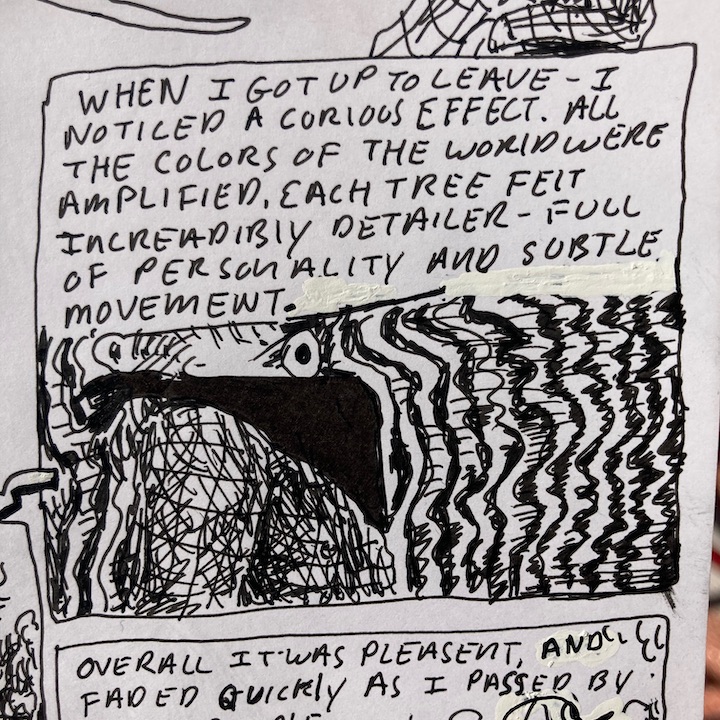 WHEN I GOT UP TO LEAVE - I
NOTICED A CURIOUS EFFECT. ALL
THE COLORS OF THE WORLD WERE
AMPLIFIED. EACH TREE FELT
INCREADIBLY DETAILER - FULL
OF PERSONALITY AND SUBTLE
MOVEMENT.
OVERALL IT WAS PLEASENT, AND
FADED QUICKLY AS I PASSED BY